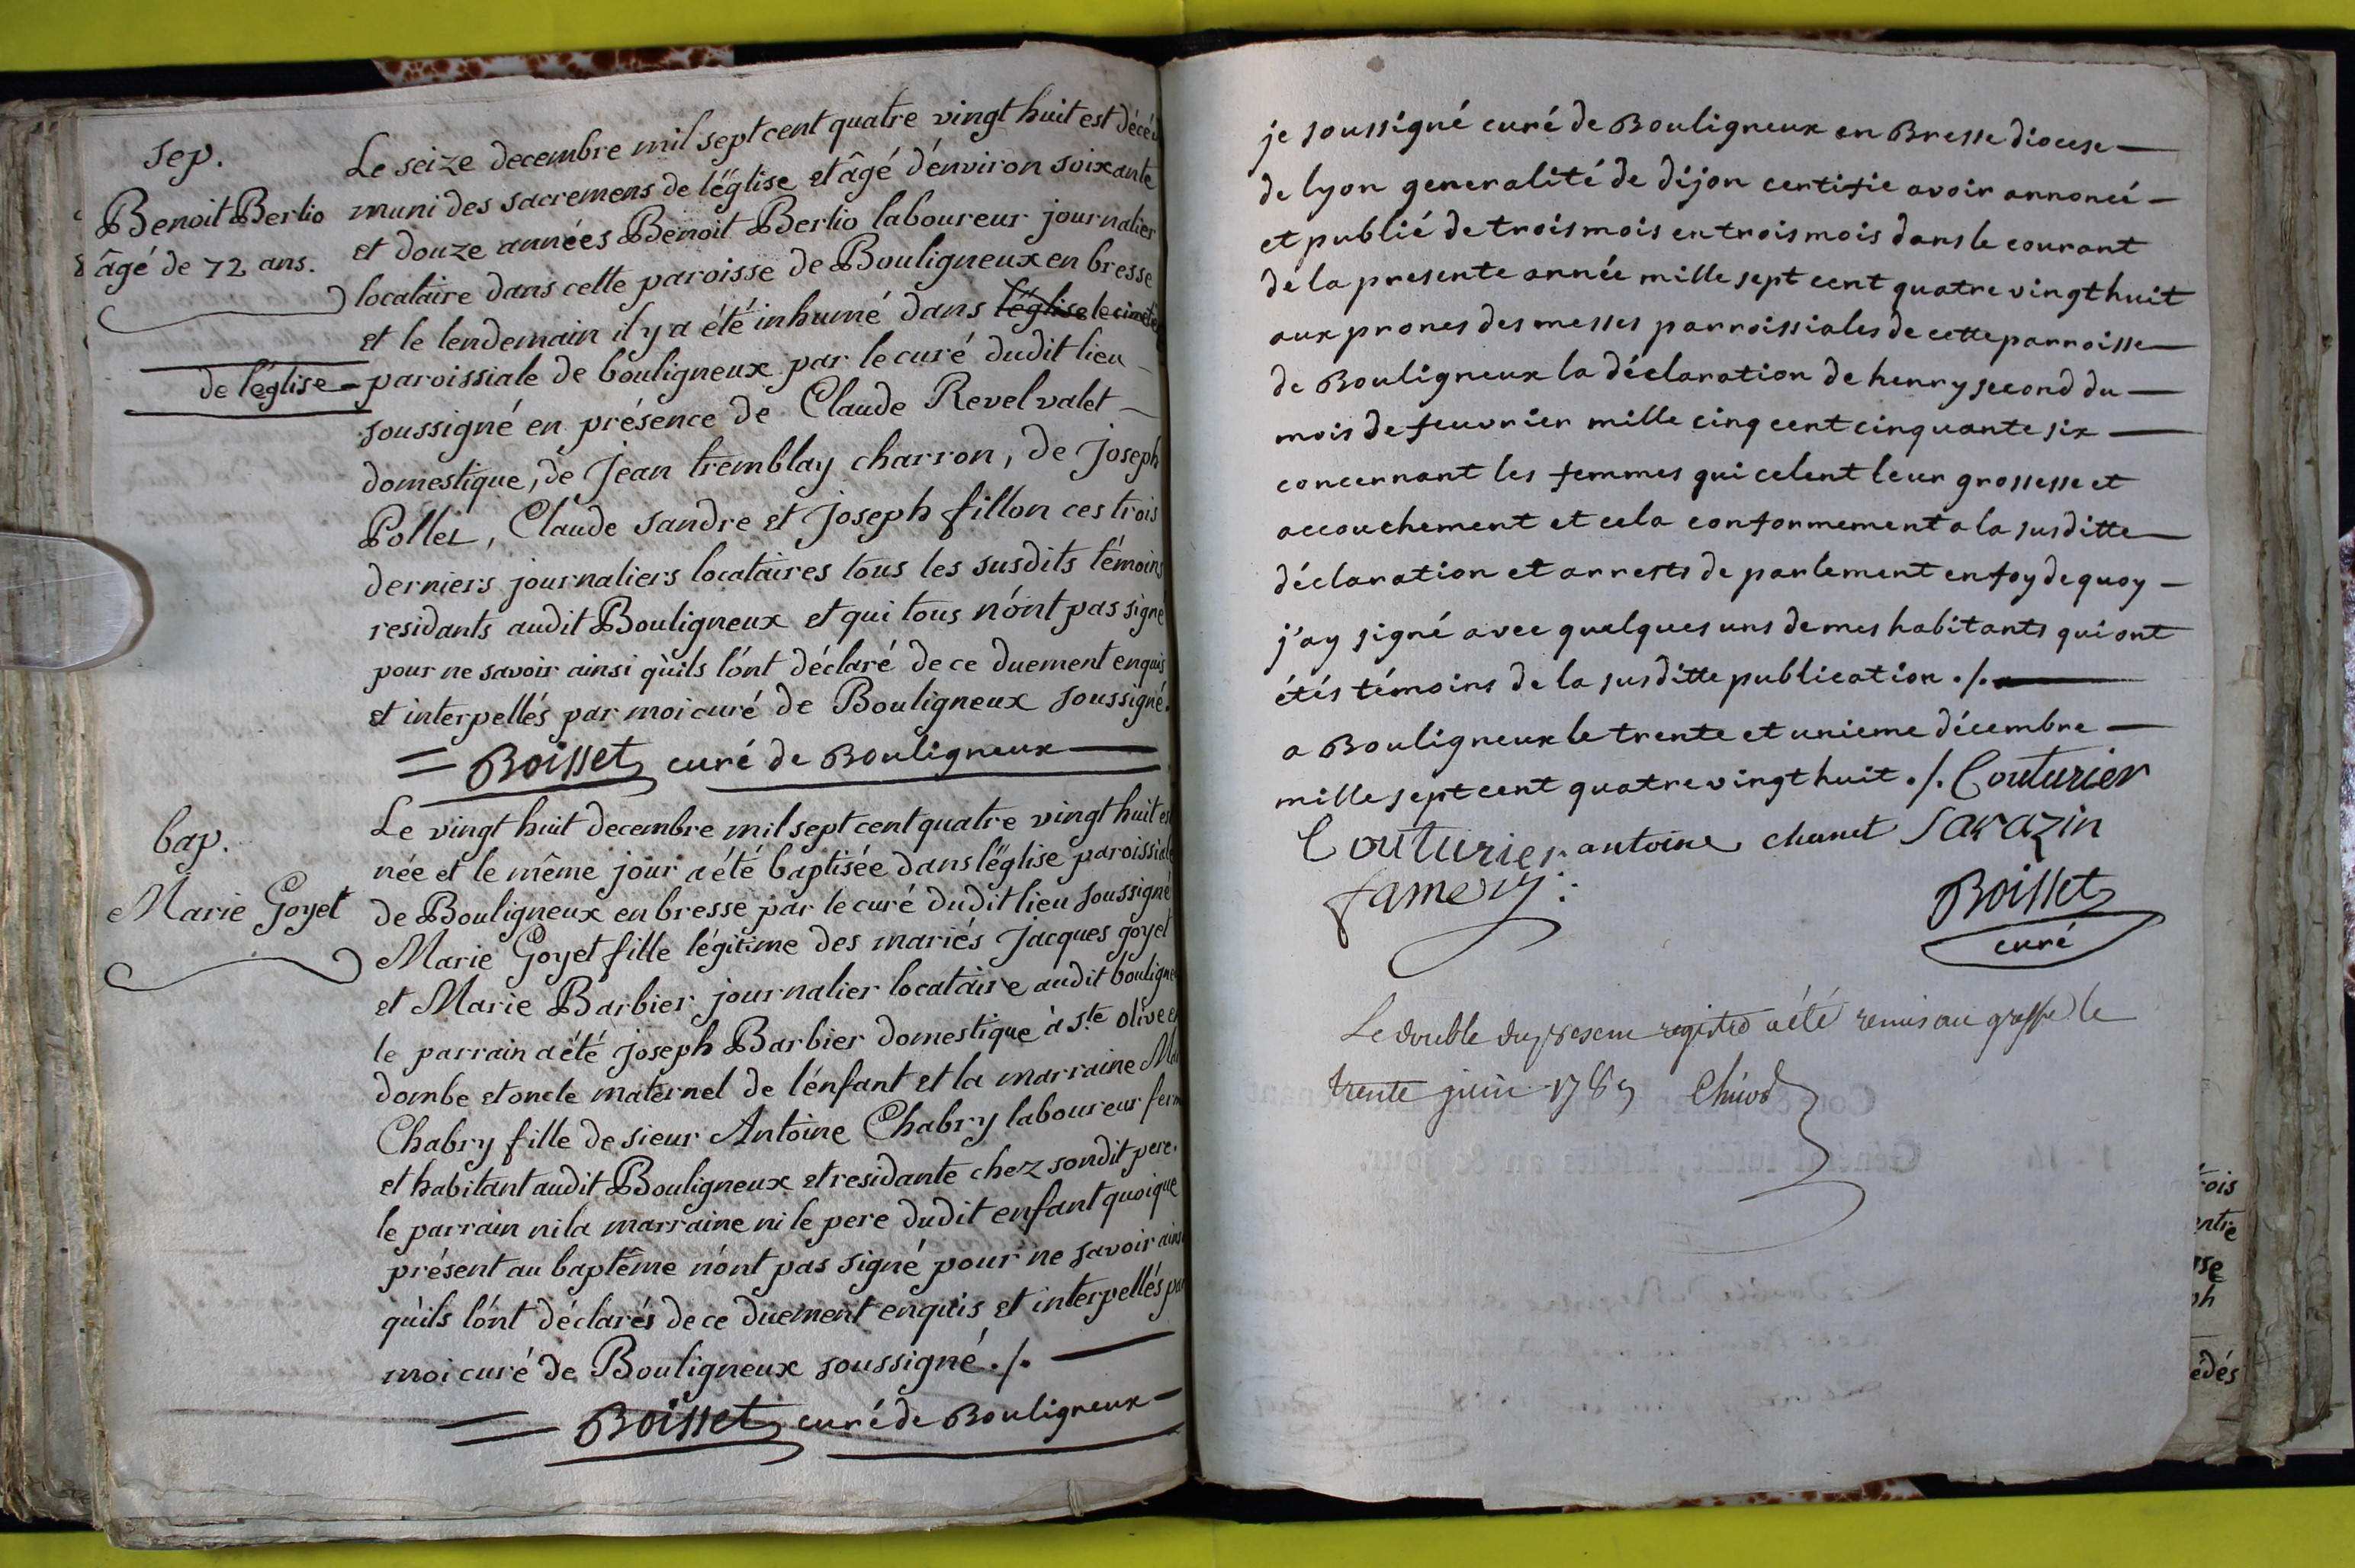 sep.
Benoit Berlio
âgé de 72 ans.
de l'église
Le seize decembre mil sept cent quatre vingt huit est décé
muni des sacremens de l'église et âgé d'énviron soixante
et douze années Benoit Berlio laboureur journalier
locataire dans cette paroisse de Bouligneux en bresse
et le lendemain il y a été inhumé dans l'église le cimet
paroissiale de bouligneux par le curé dudit lieu
soussigné en présence de Claude Revel valet
domestique, de Jean tremblay charron, de Joseph
Pollet, Claude Sandre et Joseph fillon ces trois
derniers journaliers locataires tous les susdits témoins
residants audit Bouligneux et qui tous n'ónt pas signé
pour ne savoir ainsi qu'ils l'ónt déclaré de ce duement enquis
et interpellés par moi curé de Bouligneux soussigné.
= Boisset curé de Bouligneux
bap.
Marie Goyet
Le vingt huit decembre mil sept cent quatre vingt huit es
née et le même jour a été baptisée dans l'église paroissiale
de Bouligneux en bresse par le curé dudit lieu soussigné
Marie Goyet fille légitime des mariés Jacques goyet
et Marie Barbier journalier locataire audit bouligne
le parrain a été Joseph Barbier domestique à ste olive en
dombe et oncle maternel de l'énfant et la marraine Ma
Chabry fille de sieur Antoine Chabry laboureur ferm
et habitant audit Bouligneux et residante chez sondit pere.
le parrain ni la marraine ni le pere dudit enfant quoique
présent au baptême n'ónt pas signé pour ne savoir ainsi
qu'ils l'ónt déclarés de ce duement enquis et interpellés par
moi curé de Bouligneux soussigné ./.
= Boisset curé de Bouligneux
je soussigné curé de Bouligneux en Bresse diocese
de lyon generalité de dijon certifie avoir annoncé
et publié de trois mois en trois mois dans le courant
de la presente année mille sept cent quatre vingt huit
aux prones des messes parroissiales de cette parroisse
de Bouligneux la déclaration de henry second du
mois de feuvrier mille cinq cent cinquante six
concernant les femmes qui celent leur grossesse et
accouchement et cela conformement a la susditte
déclaration et arrests de parlement en foy de quoy
j'ay signé avec quelques uns de mes habitants qui ont
étés témoins de la susditte publication ./.
a Bouligneux le trente et unieme décembre
mille sept cent quatre vingt huit ./. Couturier
Couturier antoine chanet Sarazin
famery
Boisset
curé
Le double du present registre a été remis au greffe le
trente juin 1789
rois
entre
sse
ph
édés